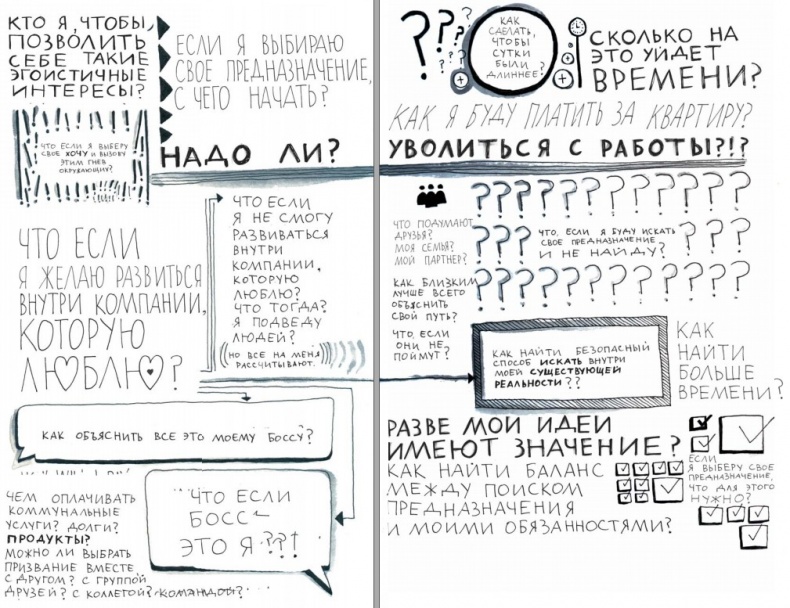 КТО Я, ЧТОБЫ
ПОЗВОЛИТЬ
СЕБЕ ТАКИЕ
ЭГОИСТИЧНЫЕ
ИНТЕРЕСЫ?
ЕСЛИ Я ВЫБИРАЮ
СВОЕ ПРЕДНАЗНАЧЕНИЕ,
С ЧЕГО НАЧАТЬ?
ЧТО ЕСЛИ Я ВЫБЕРУ
СВОЕ ХОЧУ И ВЫЗОВУ
ЭТИМ ГНЕВ
ОКРУЖАЮЩИХ?
НАДО ЛИ?
ЧТО ЕСЛИ
Я ЖЕЛАЮ РАЗВИТЬСЯ
ВНУТРИ КОМПАНИИ,
КОТОРУЮ
ЛЮБЛЮ?
ЧТО ЕСЛИ
Я НЕ СМОГУ
РАЗВИВАТЬСЯ
ВНУТРИ
КОМПАНИИ,
КОТОРУЮ
ЛЮБЛЮ?
ЧТО ТОГДА?
Я ПОДВЕДУ
ЛЮДЕЙ?
(НО ВСЕ НА МЕНЯ
РАССЧИТЫВАЮТ.
КАК ОБЪЯСНИТЬ ВСЕ ЭТО МОЕМУ БОССУ?
ЧЕМ ОПЛАЧИВАТЬ
КОММУНАЛЬНЫЕ
УСЛУГИ? ДОЛГИ?
ПРОДУКТЫ?
МОЖНО ЛИ ВЫБРАТЬ
ПРИЗВАНИЕ ВМЕСТЕ
С ДРУГОМ? С ГРУППОЙ
ДРУЗЕЙ? С КОЛЛЕГОЙ? КОМАНДОЙ?
ЧТО ЕСЛИ
БОСС
ЭТО Я??!
???
КАК
СДЕЛАТЬ,
ЧТОБЫ
СУТКИ
БЫЛИ
ДЛИННЕЕ?
СКОЛЬКО НА
ЭТО УЙДЕТ
ВРЕМЕНИ?
КАК Я БУДУ ПЛАТИТЬ ЗА КВАРТИРУ?
УВОЛИТЬСЯ С РАБОТЫ?!?
ЧТО ПОДУМАЮТ
ДРУЗЬЯ?
МОЯ СЕМЬЯ?
МОЙ ПАРТНЕР?
ЧТО, ЕСЛИ Я БУДУ ИСКАТЬ
СВОЕ ПРЕДНАЗНАЧЕНИЕ
И НЕ НАЙДУ?
КАК БЛИЗКИМ
ЛУЧШЕ ВСЕГО
ОБЪЯСНИТЬ
СВОЙ ПУТЬ?
ЧТО, ЕСЛИ
ОНИ НЕ
ПОЙМУТ?
КАК НАЙТИ БЕЗОПАСНЫЙ
СПОСОБ ИСКАТЬ ВНУТРИ
МОЕЙ СУЩЕСТВУЮЩЕЙ
РЕАЛЬНОСТИ??
КАК
НАЙТИ
БОЛЬШЕ
ВРЕМЕНИ?
РАЗВЕ МОИ ИДЕИ
ИМЕЮТ ЗНАЧЕНИЕ?
КАК НАЙТИ БАЛАНС
МЕЖДУ ПОИСКОМ
ПРЕДНАЗНАЧЕНИЯ
И МОИМИ ОБЯЗАННОСТЯМИ?
ЕСЛИ
Я ВЫБЕРУ СВОЕ
ПРЕДНАЗНАЧЕНИЕ,
ЧТО ДЛЯ ЭТОГО
НУЖНО?